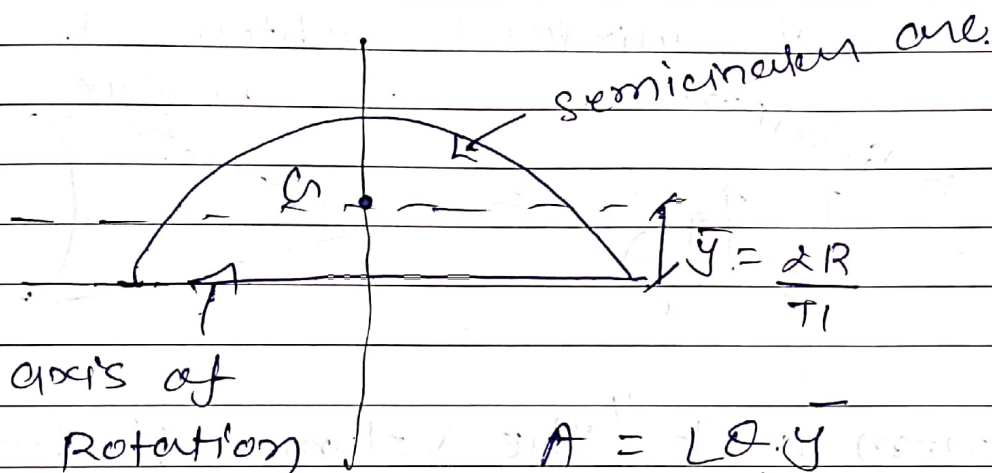 semicircular arc.
G
ȳ = 2R
π
axis of
Rotation
A = Lθ.ȳ